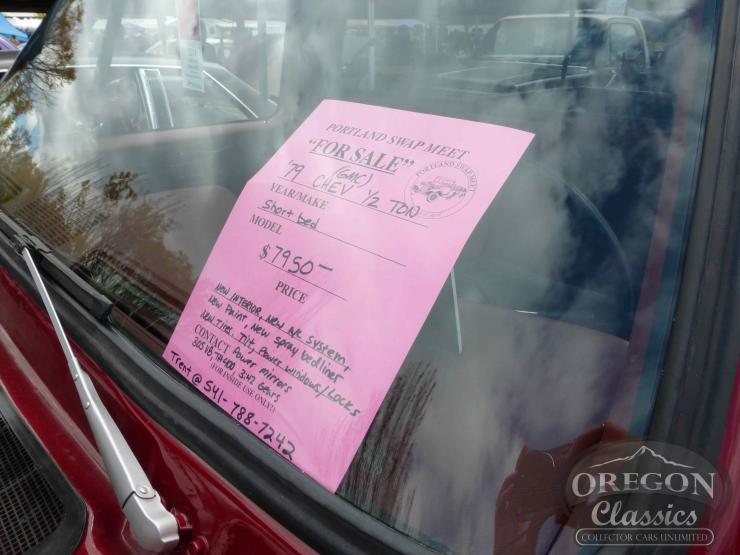 PORTLAND SWAP MEET
"FOR SALE"
PORTLAND SWAP MEET
'79 CHEV (GMC) 1/2 TON
YEAR/MAKE
Short bed
MODEL
$7950-
PRICE
NEW INTERIOR, NEW A/C SYSTEM,
NEW PAINT, NEW Spray bedliner
NEW TIRES, TILT, POWER WINDOWS/LOCKS
CONTACT POWER mirrors
305 V8, TH400 3:42 Gears
(FOR INSIDE USE ONLY)
Trent @ 541-788-7242
OREGON
Classics
COLLECTOR CARS UNLIMITED